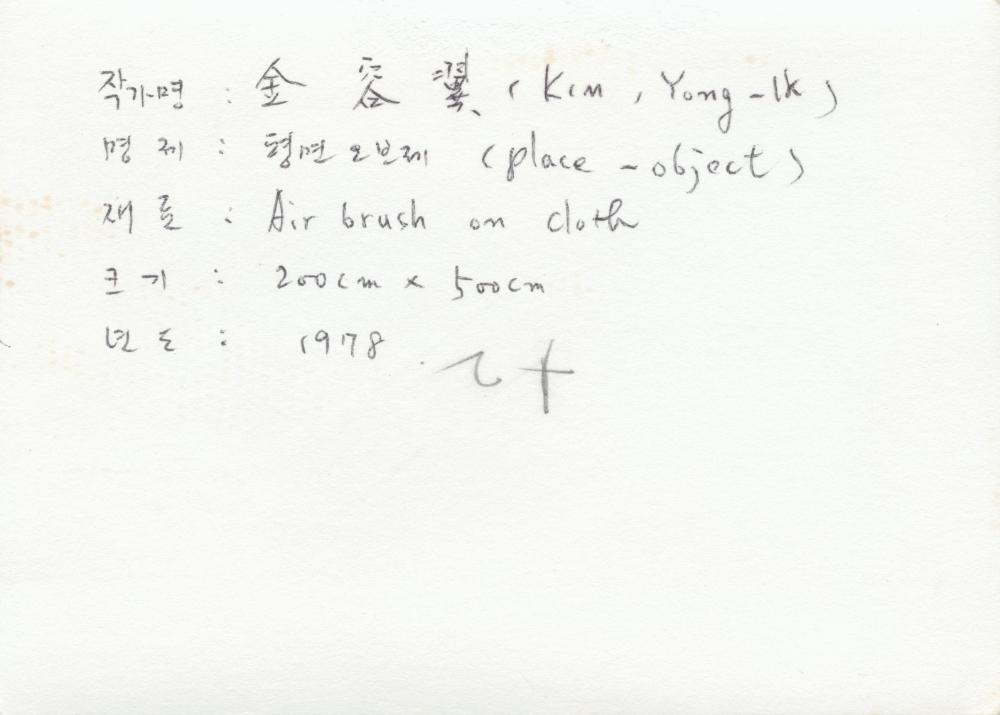 작가명 : 金 容 翼 (Kim, Yong-Ik)
명 제 : 평면오브제 (place-object)
재 료 : Air brush on cloth
크 기 : 200cm x 500cm
년 도 : 1978